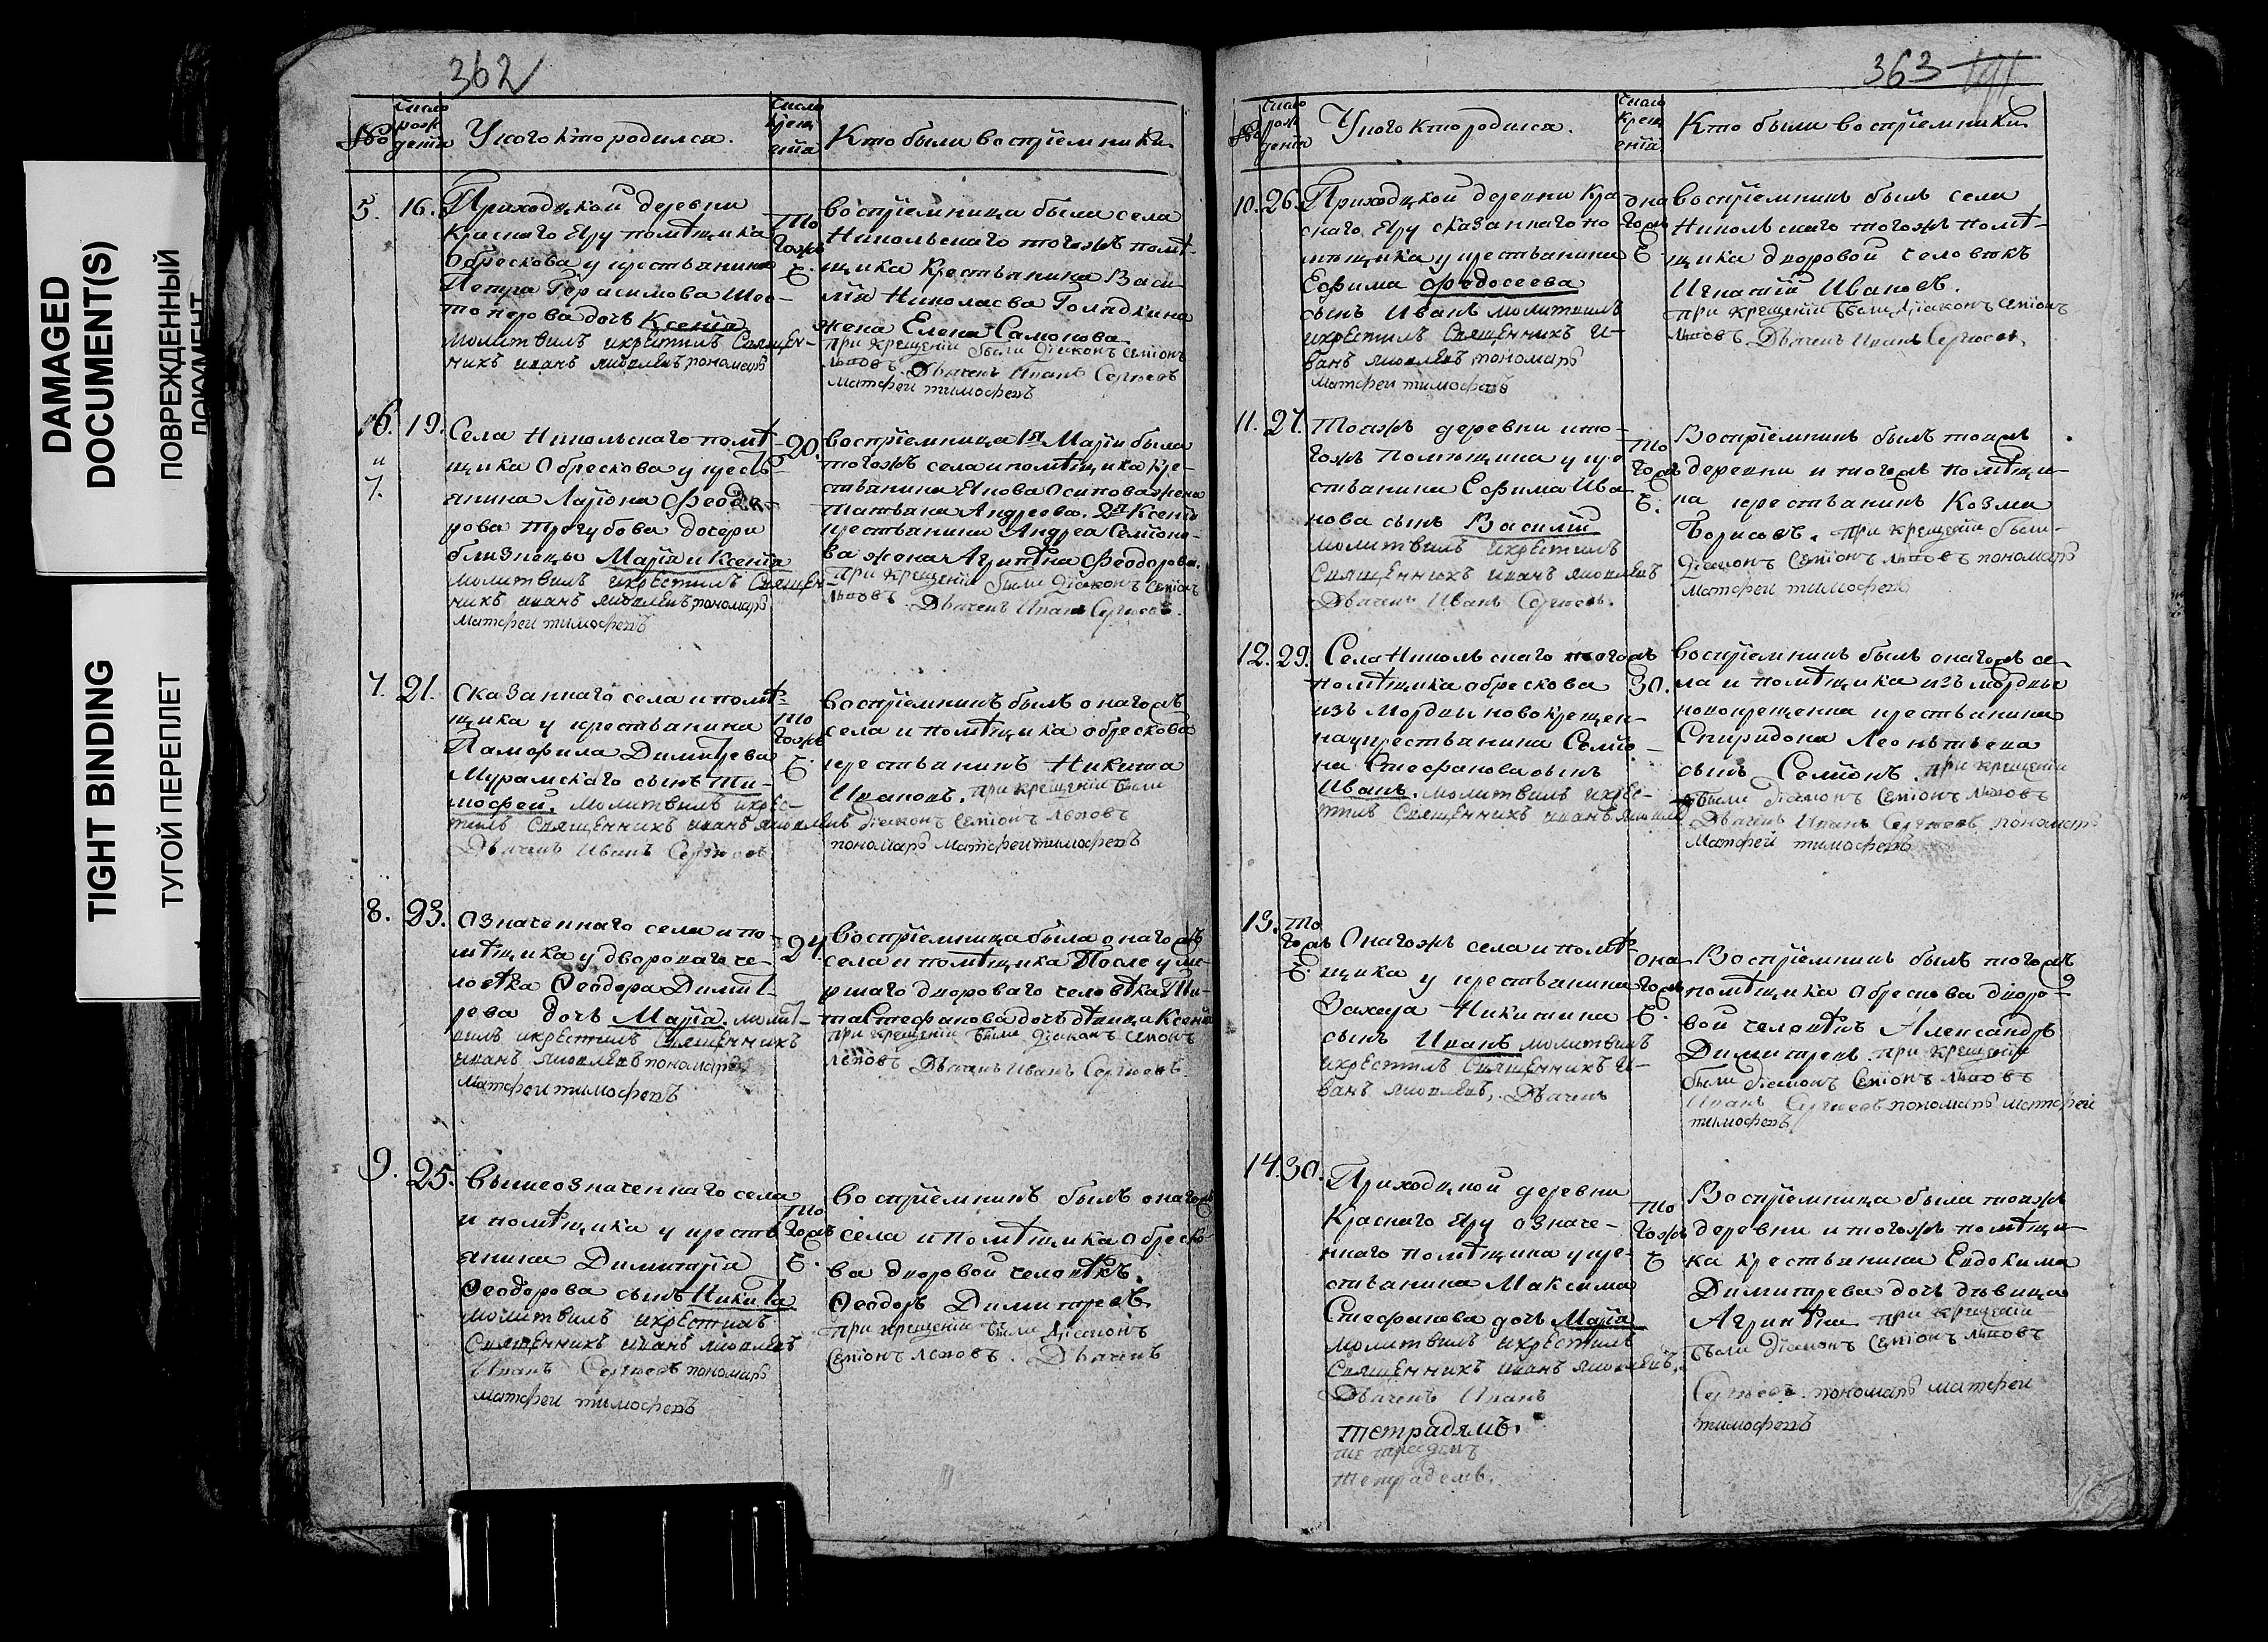 DAMAGED
DOCUMENT(S)
ПОВРЕЖДЕННЫЙ
ДОКУМЕНТ
TIGHT BINDING
ТУГОЙ ПЕРЕПЛЕТ
362
№ число рождения У кого кто родился. число крещения Кто были восприемники
5. 16. Приходцкой деревни
Краснаго Яру помѣщика
Обрескова у крестьянина
Петра Герасимова
дочь Ксенїя
молитвилъ икрѣстилъ Священ-
никъ иванъ яковлевъ пономарь
тогожъ
восприемница была села
Никольскаго тогожъ помѣ-
щика Крестьянина Васи-
лїя Николаева Голядкина
жена Елена Самонова
при крещенїи были дїаконъ семїонъ
львовъ. Дьячекъ Иванъ Сергеевъ
матфеи тимофеевъ
6. и 7. 19. Села Никольскаго помѣ-
щика Обрескова у кресть-
янина Ларїона Феодо-
рова Трегубова дочери
близнецы Марїя и Ксенїя
молитвилъ икрѣстилъ Священ-
никъ иванъ яковлевъ пономарь
матфеи тимофеевъ
20. восприемница 1й Марїи была
тогожъ села и помѣщика кре-
стьянина Якова Осипова жена
Татьяна Андреева. 2й Ксенїи
крестьянина Андрея Семїоно-
ва жена Агрипѣна Феодорова.
при крещенїи были дїаконъ семїонъ
львовъ. Дьячекъ Иванъ Сергеевъ.
7. 21. Сказаннаго села и помѣ-
щика у крестьянина
Памфила Димитрева
Мурамскаго сынъ Ти-
мофей. молитвилъ икрѣс-
тилъ Священникъ иванъ яковлевъ
Дьячекъ Иванъ Сергеевъ
тогожъ
восприемникъ былъ онагожъ
села и помѣщика обрескова
крестьянинъ Никита
Ивановъ. при крещенїи были
дїаконъ семїонъ львовъ
пономарь матфеи тимофеевъ
8. 23. Означеннаго села и по-
мѣщика у двороваго че-
ловѣка Ѳеодора Димит-
рева дочь Марїя. молит-
вилъ икрѣстилъ Священникъ
иванъ яковлевъ пономарь
матфеи тимофеевъ
24 восприемница была онагожъ
села и помѣщика После уме-
ршаго двороваго человѣка Ти-
та Стефанова дочь дѣвица Ксенїя
при крещенїи были дїаконъ семїонъ
львовъ Дьячекъ Иванъ Сергеевъ
9. 25. Вышеозначеннаго села
и помѣщика у кресть-
янина Димитрїя
Ѳеодорова сынъ Никита
молитвилъ икрѣстилъ
Священникъ иванъ яковлевъ
Иванъ Сергеевъ пономарь
матфеи тимофеевъ
тогожъ
восприемникъ былъ онагожъ
села и помѣщика Обреско-
ва дворовой человѣкъ.
Ѳеодоръ Димитревъ
при крещенїи были дїаконъ
Семїонъ львовъ. Дьячекъ
363
№ число рождения У кого кто родился. число крещения Кто были восприемники
10. 26. Приходцкой деревни Кра-
снаго Яру сказаннаго по-
мѣщика у крестьянина
Ефима Федосеева
сынъ Иванъ молитвилъ
икрѣстилъ Священникъ И-
ванъ яковлевъ пономарь
матфеи тимофеевъ
онагожъ
восприемникъ былъ села
Никольскаго тогожъ помѣ-
щика дворовой человѣкъ
Игнатїй Ивановъ.
при крещенїи были дїаконъ семїонъ
львовъ. Дьячекъ Иванъ Сергеевъ.
11. 27. Тояжъ деревни и то-
гожъ помѣщика у кре-
стьянина Ефима Ива-
нова сынъ Василїй
молитвилъ икрѣстилъ
Священникъ иванъ яковлевъ
Дьячекъ Иванъ Сергеевъ.
тогожъ
Восприемникъ былъ тояжъ
деревни и тогожъ помѣщи-
ка крестьянинъ Козма
Борисовъ. при крещенїи были-
дїаконъ Семїонъ львовъ пономарь
матфеи тимофеевъ
12. 29. Села Никольскаго тогожъ
помѣщика обрескова
изъ Мордвы новокрещен-
на крестьянина Семїо-
на Стефанова сынъ
Иванъ. молитвилъ икрѣс-
тилъ Священникъ иванъ яковлевъ
30. восприемникъ былъ онагожъ се-
ла и помѣщика изъ мордвы
новокрещенна крестьянина
Спиридона Леонтьева
сынъ Семїонъ. при крещенїи
были дїаконъ Семїонъ львовъ
Дьячекъ Иванъ Сергеевъ пономарь
Матфей тимофеевъ
13. тогожъ Онагожъ села и помѣ-
щика у крестьянина
Захара Никитина
сынъ Иванъ молитвилъ
икрѣстилъ Священникъ И-
ванъ яковлевъ, Дьячекъ
онагожъ
Восприемникъ былъ тогожъ
помѣщика Обрескова дворо-
вой человѣкъ Александръ
Димитревъ при крещенїи
были дїаконъ Семїонъ львовъ
Иванъ Сергеевъ пономарь матфеи
тимофеевъ
14. 30. Приходцкой деревни
Краснаго Яру означе-
ннаго помѣщика у кре-
стьянина Максима
Стефанова дочь Марїя
молитвилъ икрѣстилъ
Священникъ иванъ яковлевъ.
Дьячекъ Иванъ
тогожъ
Восприемница была тояжъ
деревни и тогожъ помѣщи-
ка крестьянина Евдокима
Димитрева дочь дѣвица
Агрипѣна при крещенїи
были дїаконъ Семїонъ львовъ
Сергеевъ. пономарь матфеи
тимофеевъ
тетрадямъ.